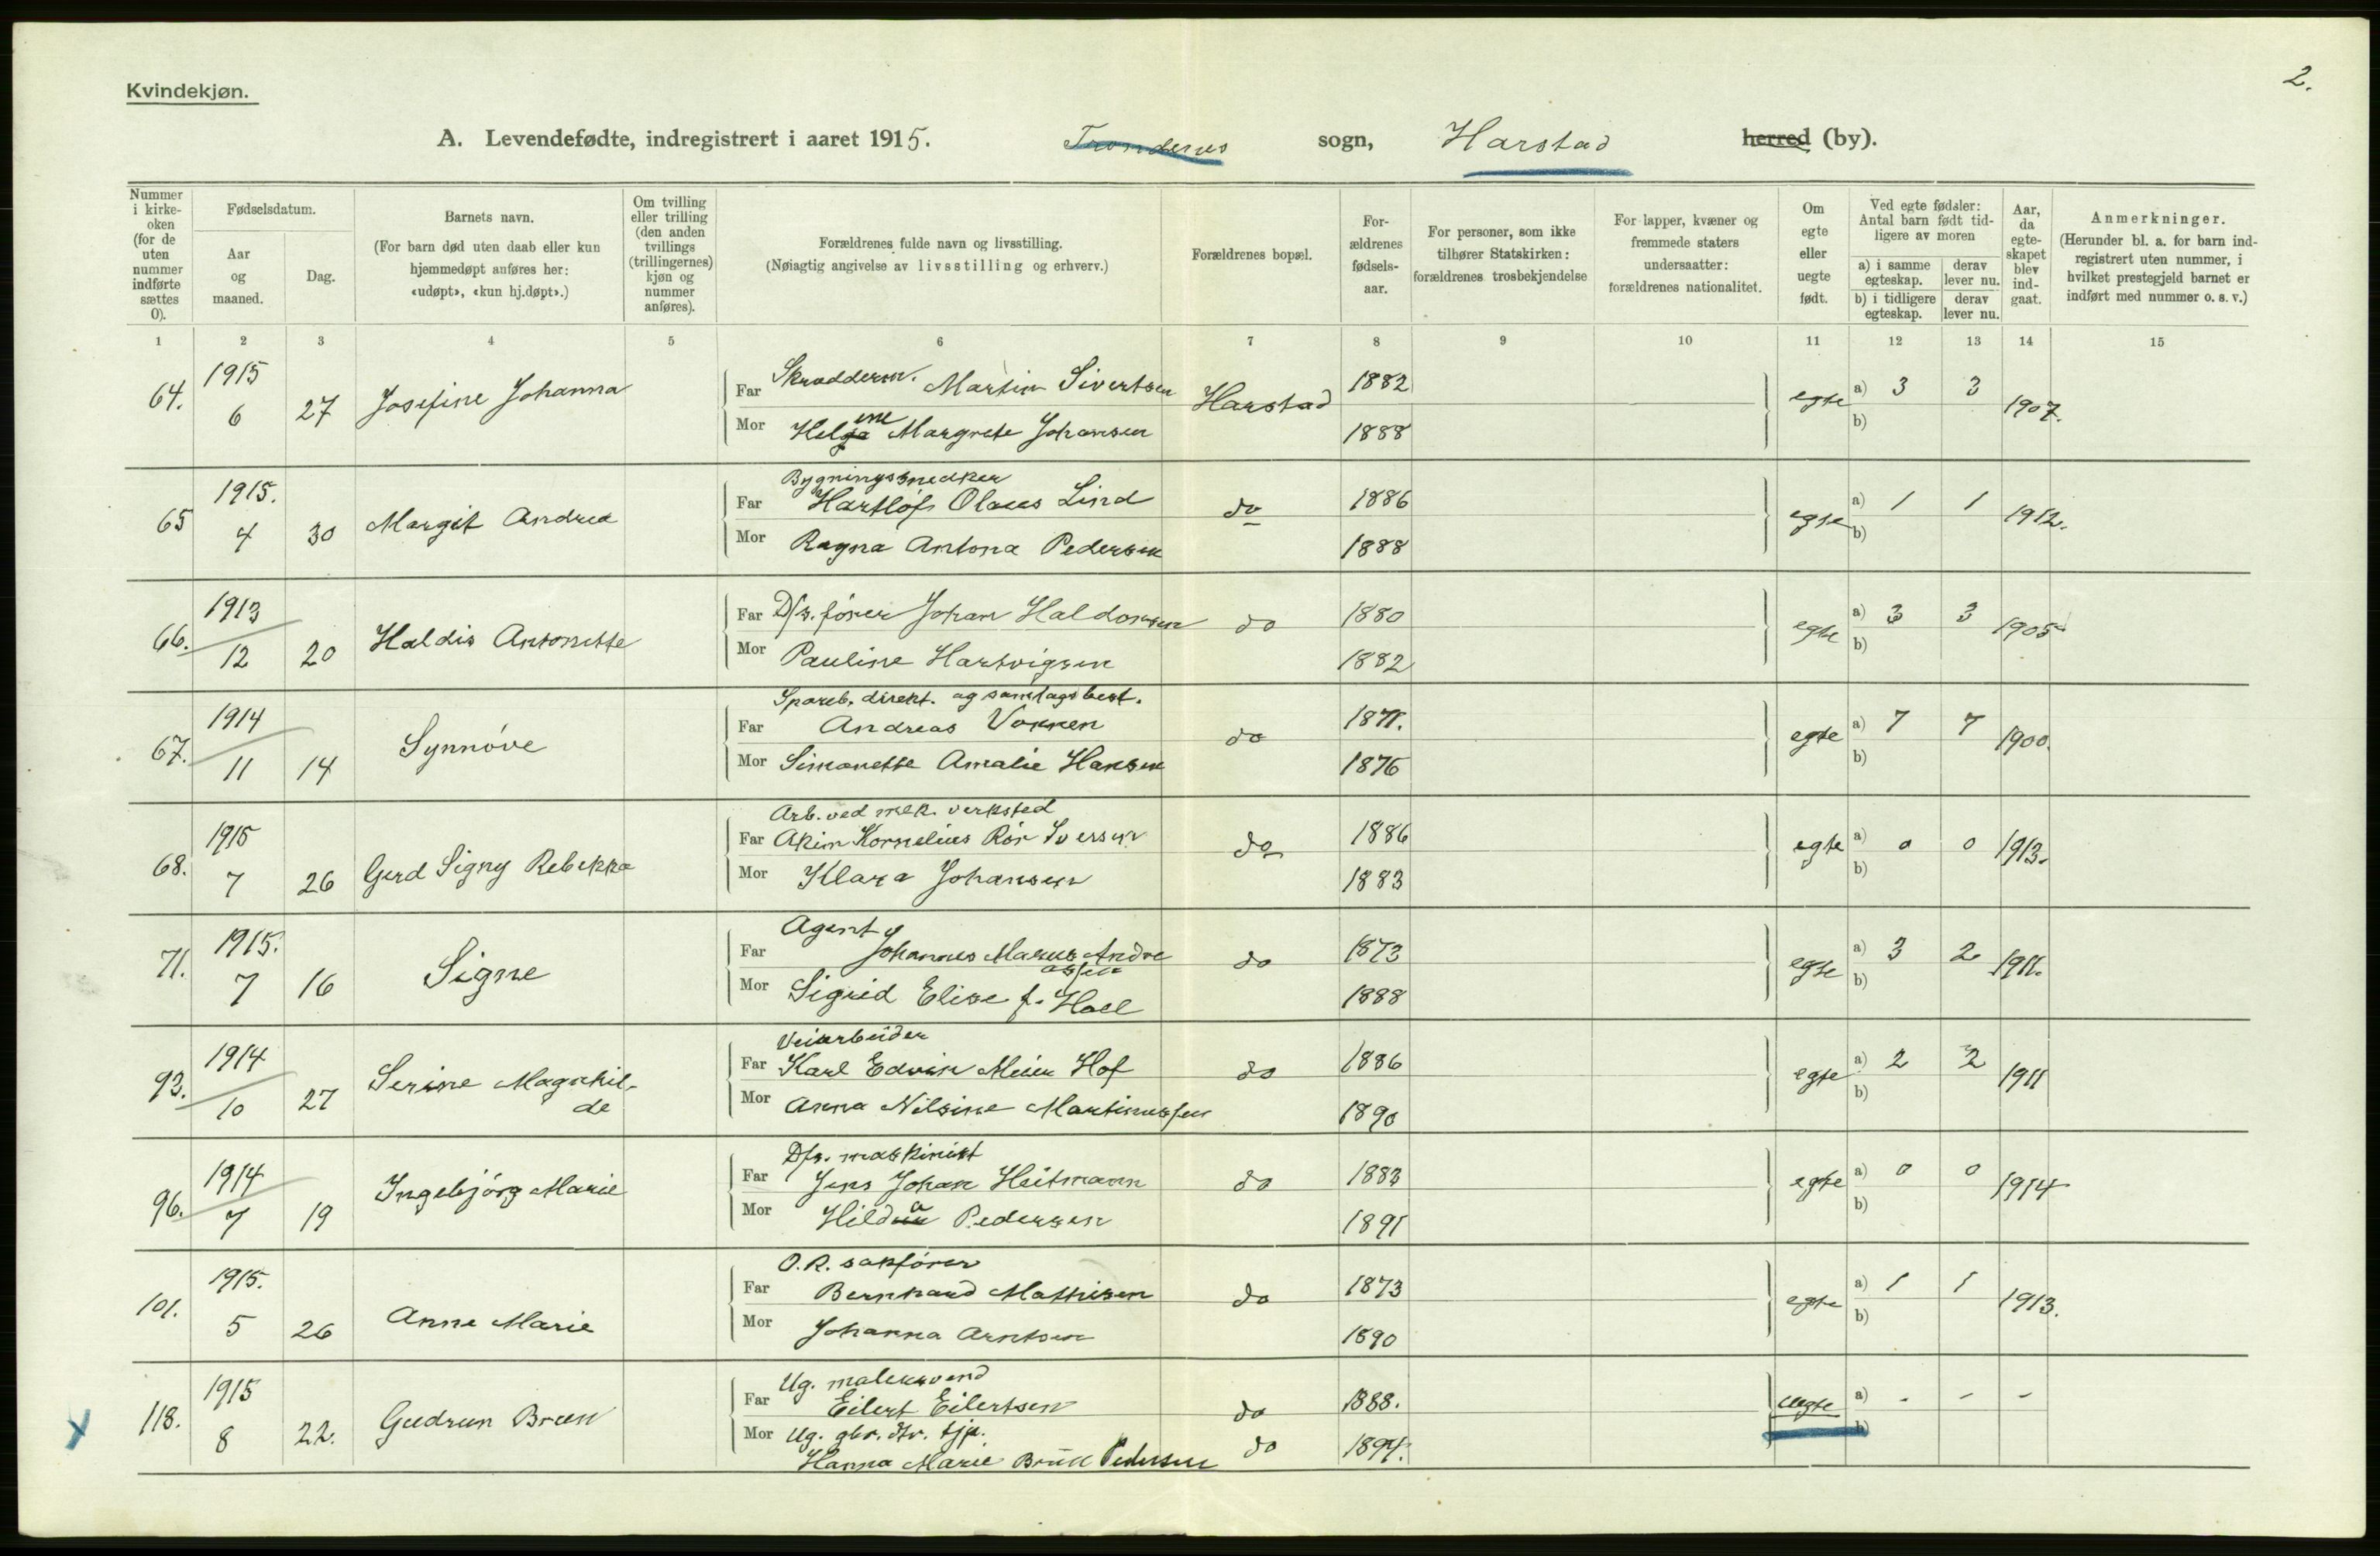 2.
Kvindekjøn.
A. Levendefødte, indregistrert i aaret 1915. Trondenes sogn, Harstad herred (by).
Nummer i kirke-oken (for de uten nummer indførte sættes 0).
Fødselsdatum.
Aar og maaned.
Dag.
Barnets navn.
(For barn død uten daab eller kun hjemmedøpt anføres her: «udøpt», «kun hj.døpt».)
Om tvilling eller trilling (den anden tvillings (trillingernes) kjøn og nummer anføres).
Forældrenes fulde navn og livsstilling.
(Nøiagtig angivelse av livsstilling og erhverv.)
Forældrenes bopæl.
For-ældrenes fødsels-aar.
For personer, som ikke tilhører Statskirken: forældrenes trosbekjendelse
For lapper, kvæner og fremmede staters undersaatter: forældrenes nationalitet.
Om egte eller uegte født.
Ved egte fødsler: Antal barn født tid-ligere av moren
a) i samme egteskap.
derav lever nu.
b) i tidligere egteskap.
derav lever nu.
Aar, da egte-skapet blev ind-gaat.
Anmerkninger.
(Herunder bl. a. for barn ind-registrert uten nummer, i hvilket prestegjeld barnet er indført med nummer o. s. v.)
1 2 3 4 5 6 7 8 9 10 11 12 13 14 15
64. 1915 6 27 Josefine Johanna
Far Skrædderm. Martin Sivertsen Harstad 1882 egte a) 3 3 1907.
Mor Helene Margrete Johansen 1888 b)
65 1915. 4 30 Margit Andrea
Bygningssnedker
Far Hartlof Olaus Lind do 1886 egte a) 1 1 1912.
Mor Ragna Antona Pedersen 1888 b)
66. 1913 12 20 Haldis Antonette
Far D/s. fører Johan Haldorsen do 1880 egte a) 3 3 1905
Mor Pauline Hartvigsen 1882 b)
67. 1914 11 14 Synnøve
Spareb. direkt. og samlagsbest.
Far Andreas Vokken do 1871. egte a) 7 7 1900.
Mor Simonette Amalie Hansen 1876 b)
68. 1915 7 26 Gerd Signy Rebekka
Arb. ved mek. verksted
Far Akim Kornelius Rør Iversen do 1886 egte a) 0 0 1913.
Mor Klara Johansen 1883 b)
71. 1915. 7 16 Signe
Agent
Far Johannes Marius Andreassen do 1873 egte a) 3 2 1911.
Mor Sigrid Elise f. Hoel 1888 b)
93. 1914 10 27 Serine Magnhil-
de
Veiarbeider
Far Karl Edvin Meier Hof do 1886 egte a) 2 2 1911
Mor Anna Nilsine Martinussen 1890 b)
96. 1914 7 19 Ingebjørg Marie
D/s. maskinist
Far Jens Johan Heitmann do 1883 egte a) 0 0 1914
Mor Hilda Pedersen 1891 b)
101. 1915. 5 26 Anne Marie
O.R. sakfører
Far Bernhard Mathisen do 1873 egte a) 1 1 1913.
Mor Johanna Arntsen 1890 b)
118. 1915 8 22. Gudrun Bruun
Ug. malersvend
Far Eilert Eilertsen do 1888. uegte a) - - -
Mor Ug. gbr. dtr. tjp. do 1894. b)
Hanna Marie Pedersen